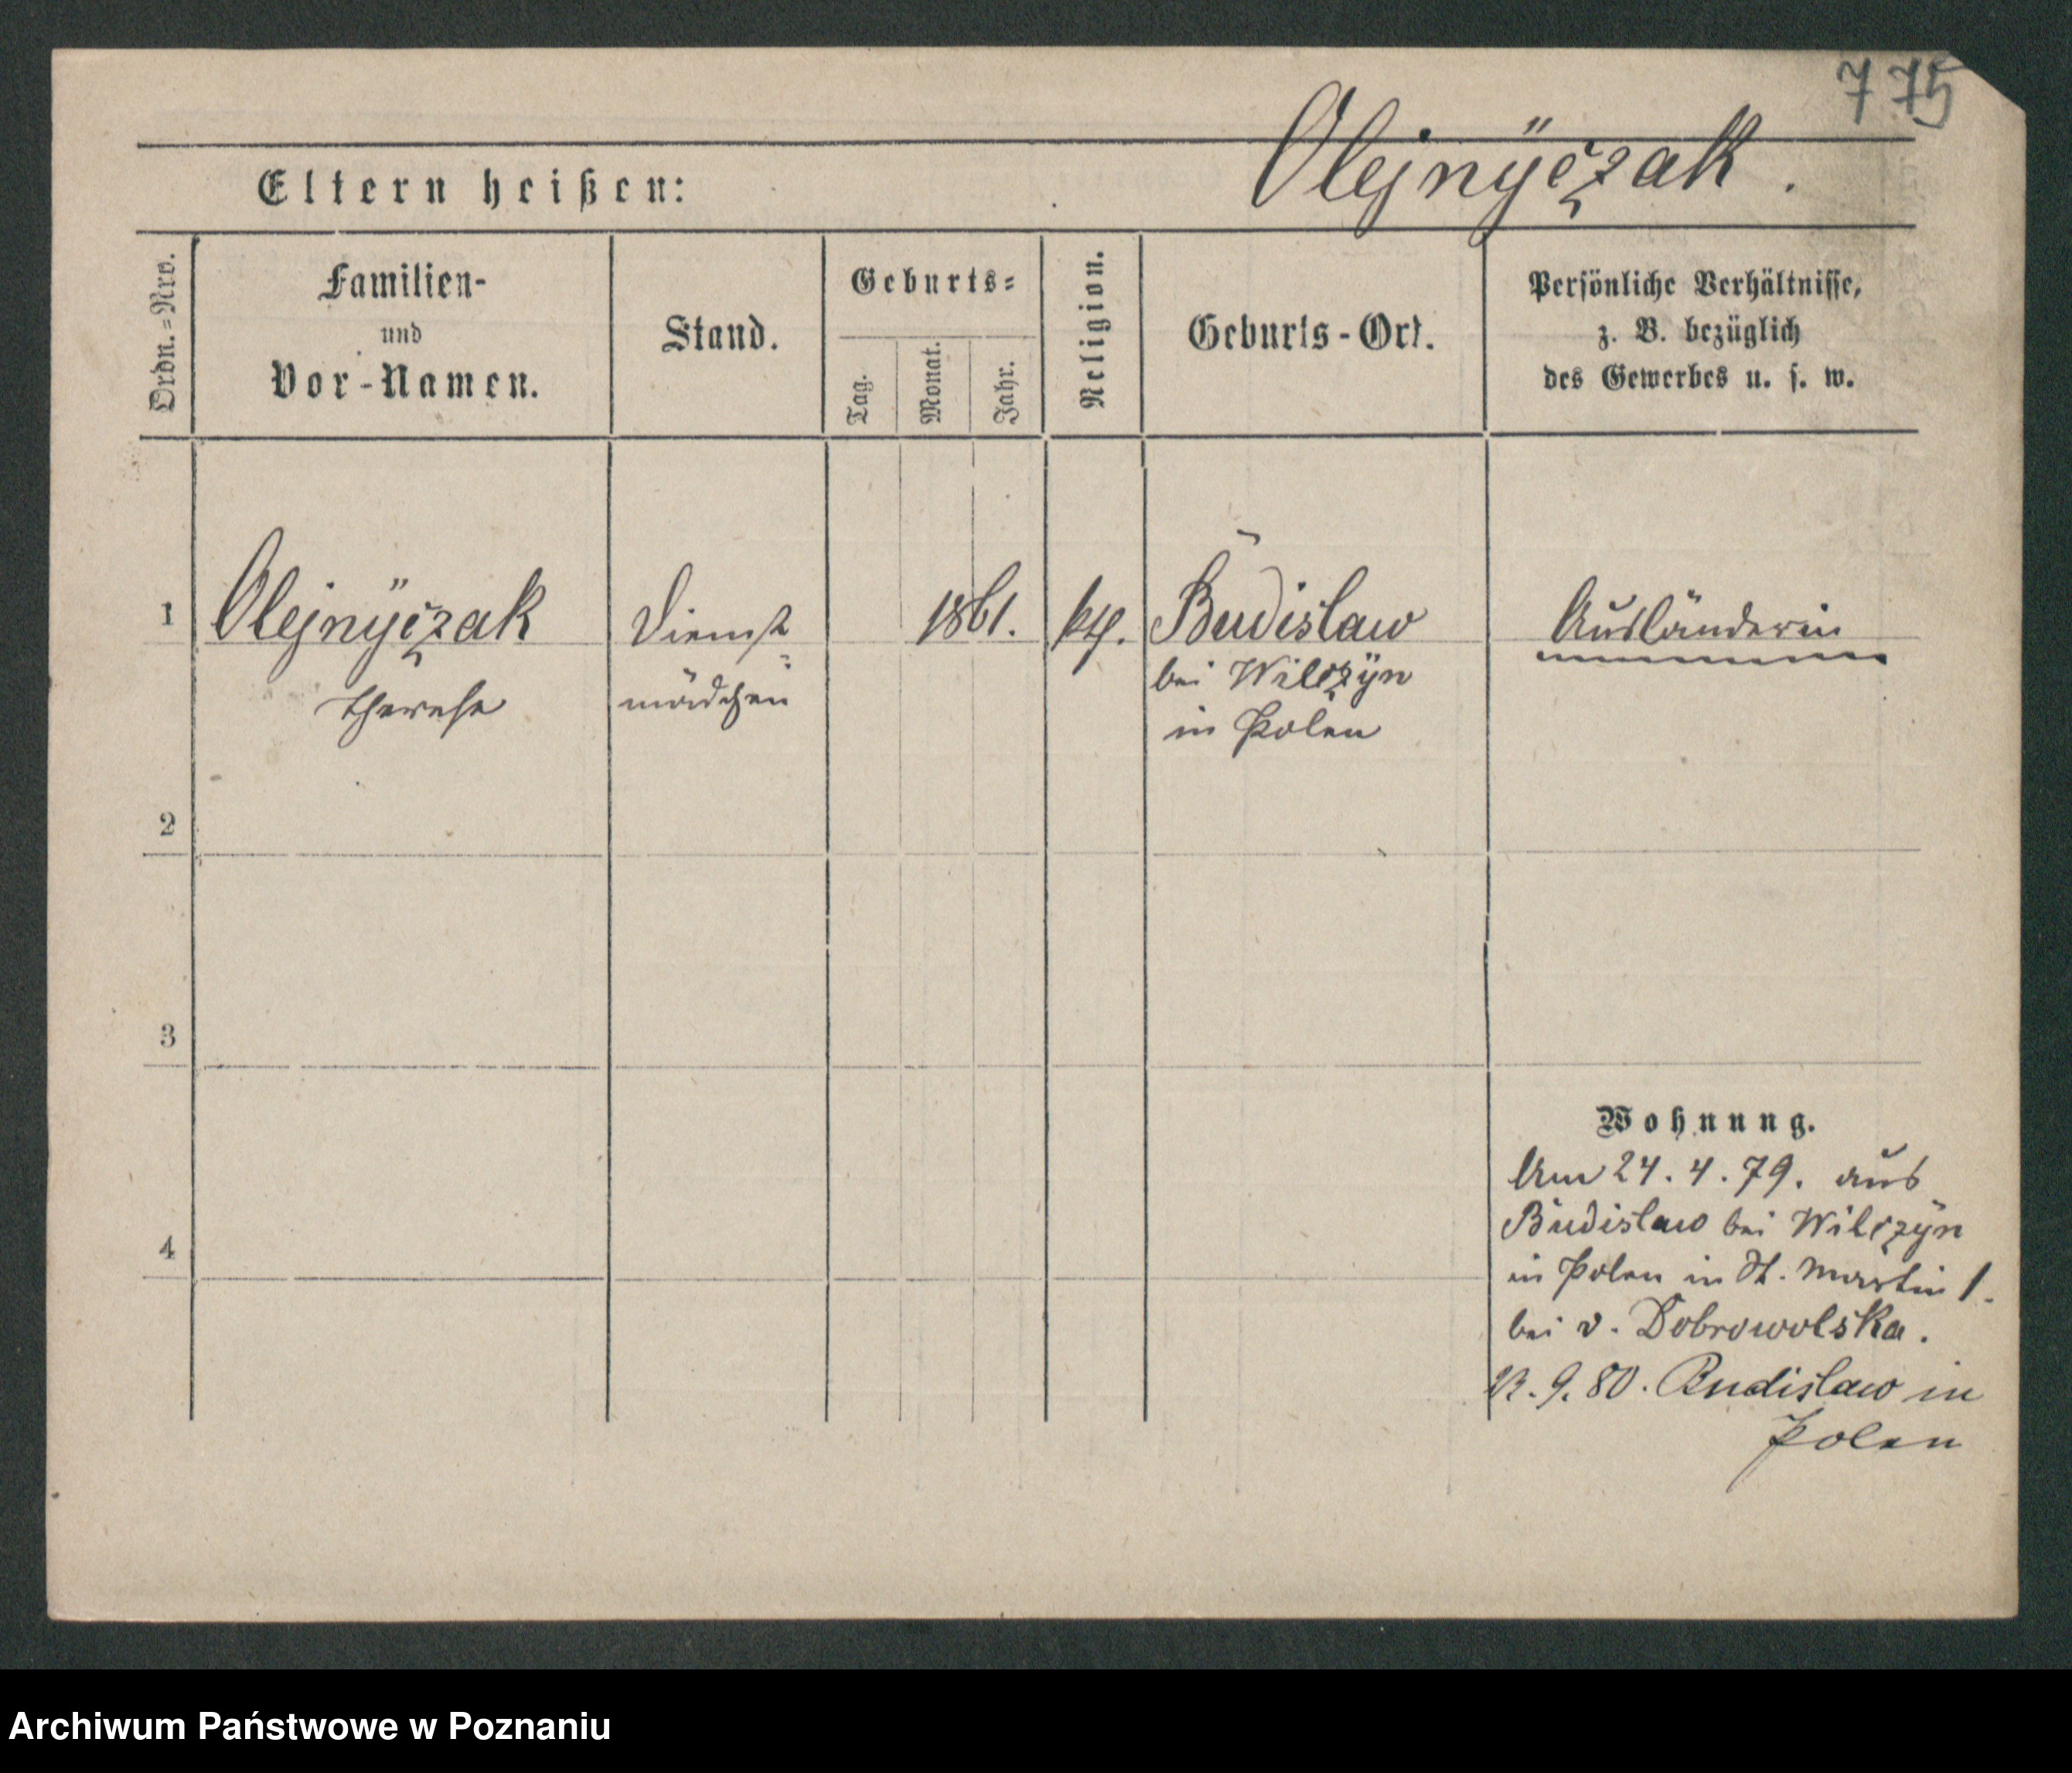 775
Olejnÿczak.
Eltern heißen:
Ordn.=Nro.
Familien-
und
Vor-Namen.
Stand.
Geburts=
Tag.
Monat.
Jahr.
Religion.
Geburts-Ort.
Persönliche Verhältnisse,
z. B. bezüglich
des Gewerbes u. s. w.
1
Olejnÿczak
Therese
Dienst=
mädchen
1861.
kth.
Budislaw
bei Wilczÿn
in Polen
Ausländerin
2
3
4
Wohnung.
Am 24. 4. 79. aus
Budislaw bei Wilczÿn
in Polen in St. Martin 1.
bei v. Dobrowolska.
9. 80. Budislaw in
Polen
Archiwum Państwowe w Poznaniu